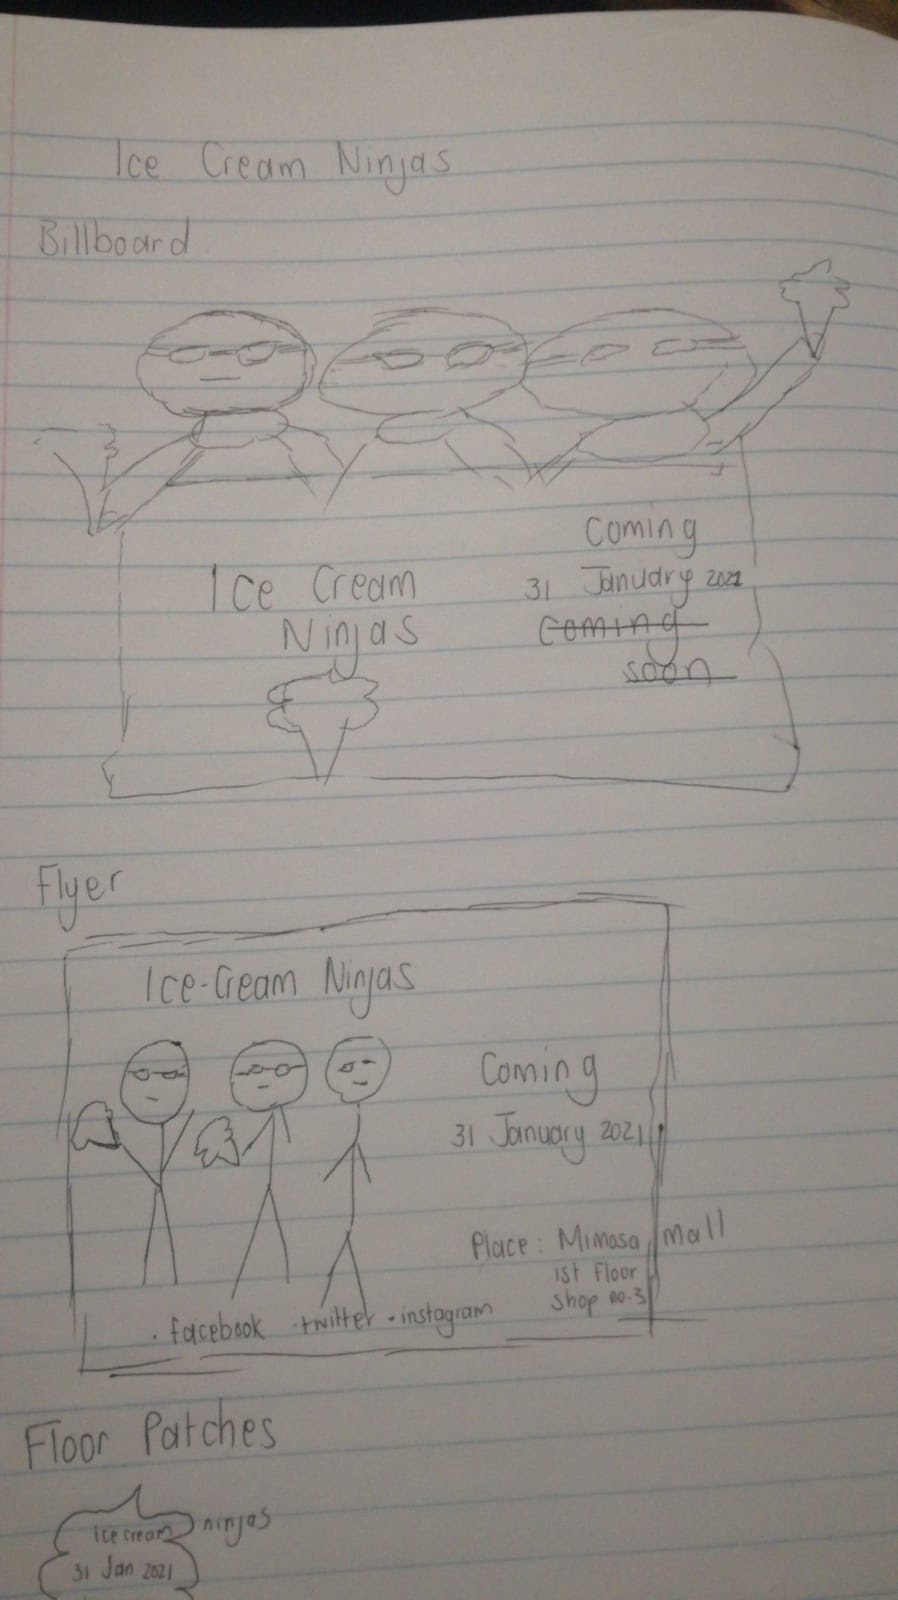 Ice Cream Ninjas
Billboard
Ice Cream
Ninjas
Coming
31 January 2021
Coming
soon
Flyer
Ice-Cream Ninjas
Coming
31 January 2021
Place: Mimosa Mall
1st floor
shop no.3
. facebook . twitter . instagram
Floor Patches
Ice cream ninjas
31 Jan 2021